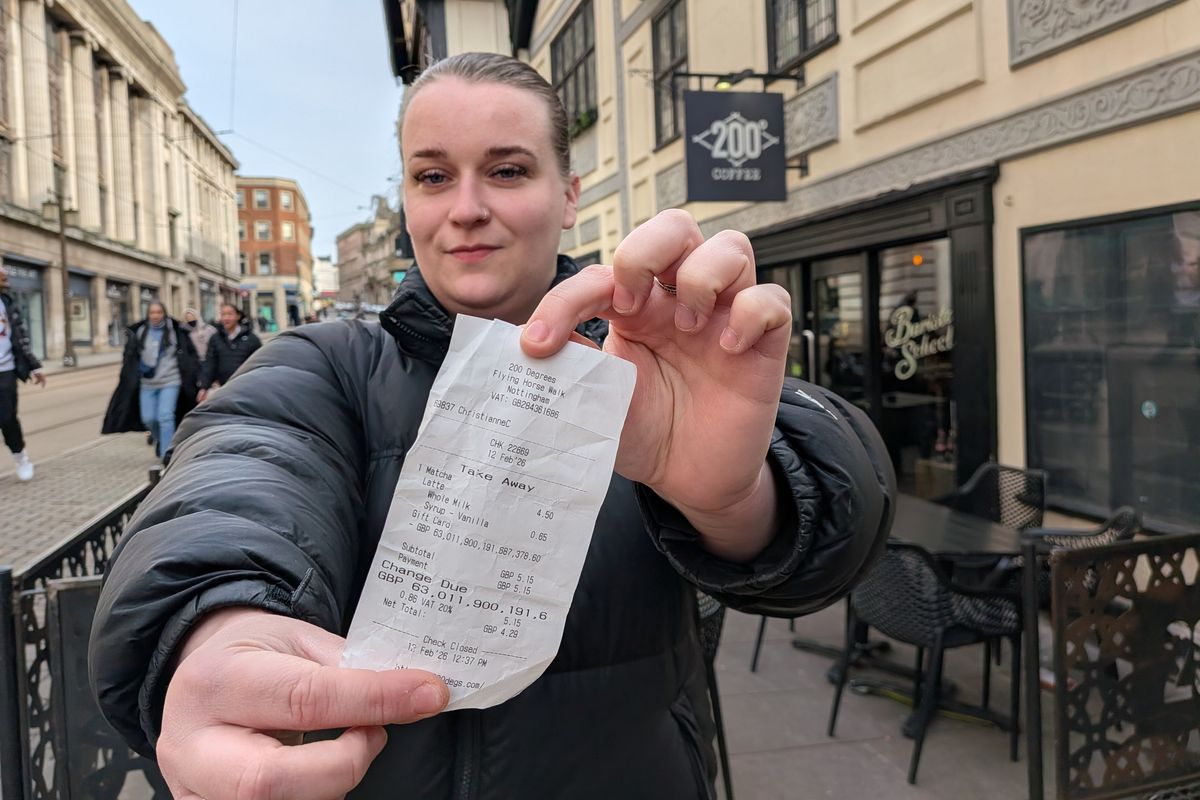 200°
COFFEE
Barista
School
200 Degrees
Flying Horse Walk
Nottingham
VAT: GB284361686
69637 ChristianneC
CHK 22669
12 Feb'26
Take Away
1 Matcha
Latte 4.50
Whole Milk
Syrup - Vanilla 0.65
Gift Card
- GBP 63,011,900,191,687,378.60
Subtotal GBP 5.15
Payment GBP 5.15
Change Due
GBP 63,011,900,191,6
5.15
0.86 VAT 20%
Net Total: GBP 4.29
Check Closed
12 Feb'26 12:37 PM